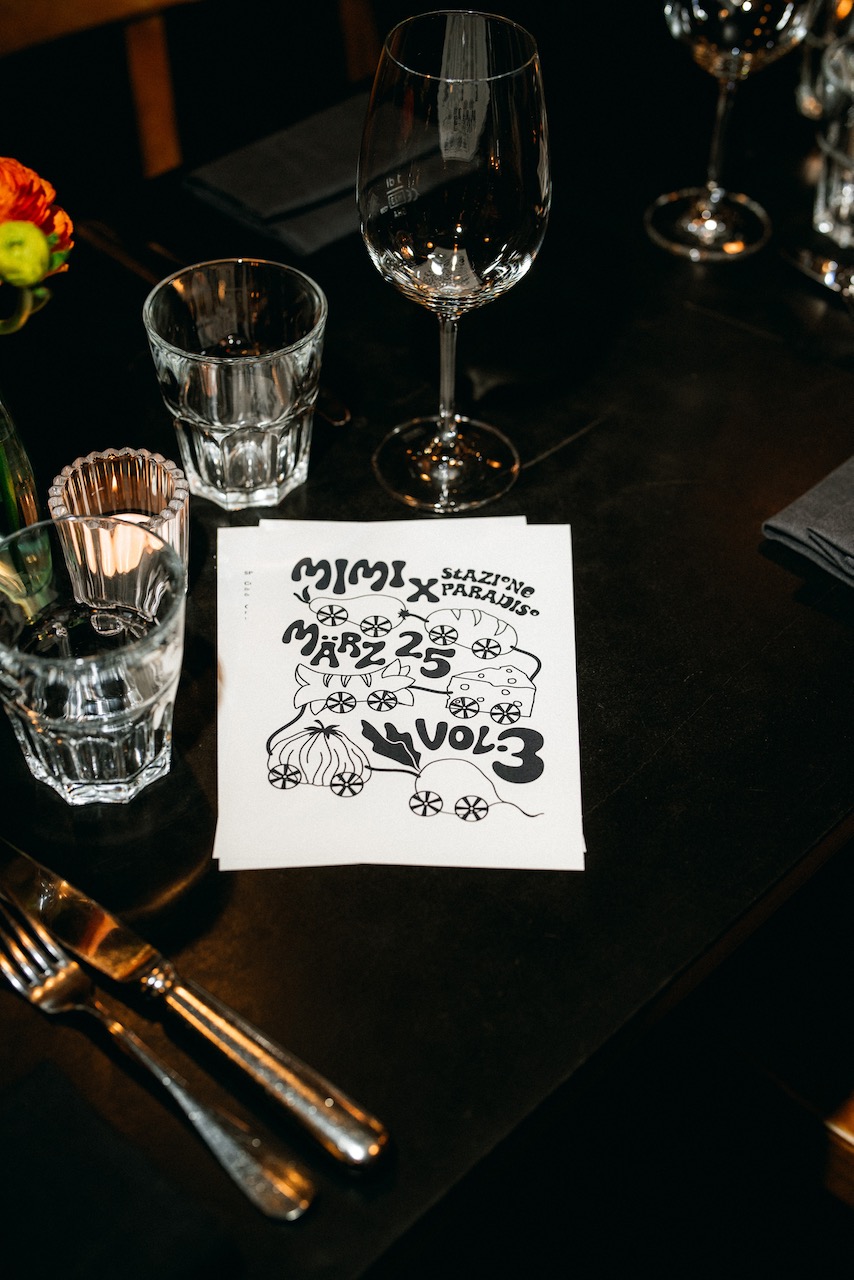 MIMI X STAZIONE
PARADISO
MÄRZ 25
VOL.3